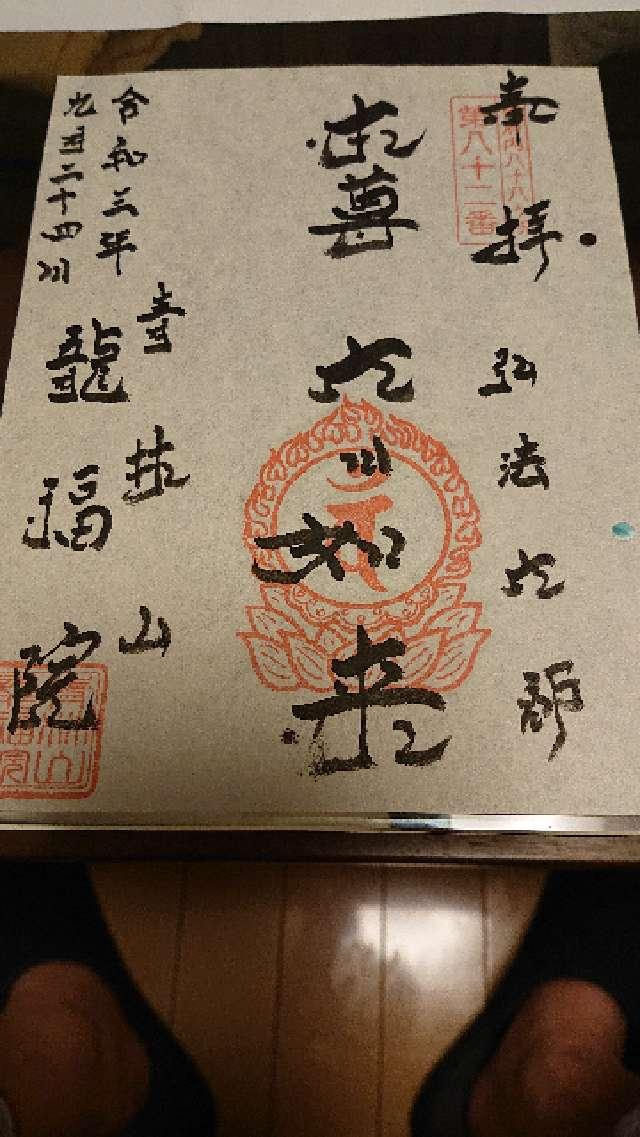 奉拝
第八十二番
弘法大師
本尊
大日如来
青林山
龍福院
令和三年
九月二十四日